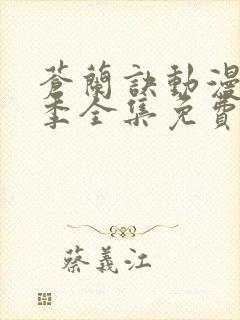 蒼蘭訣動漫
季全集免費
蔡義江